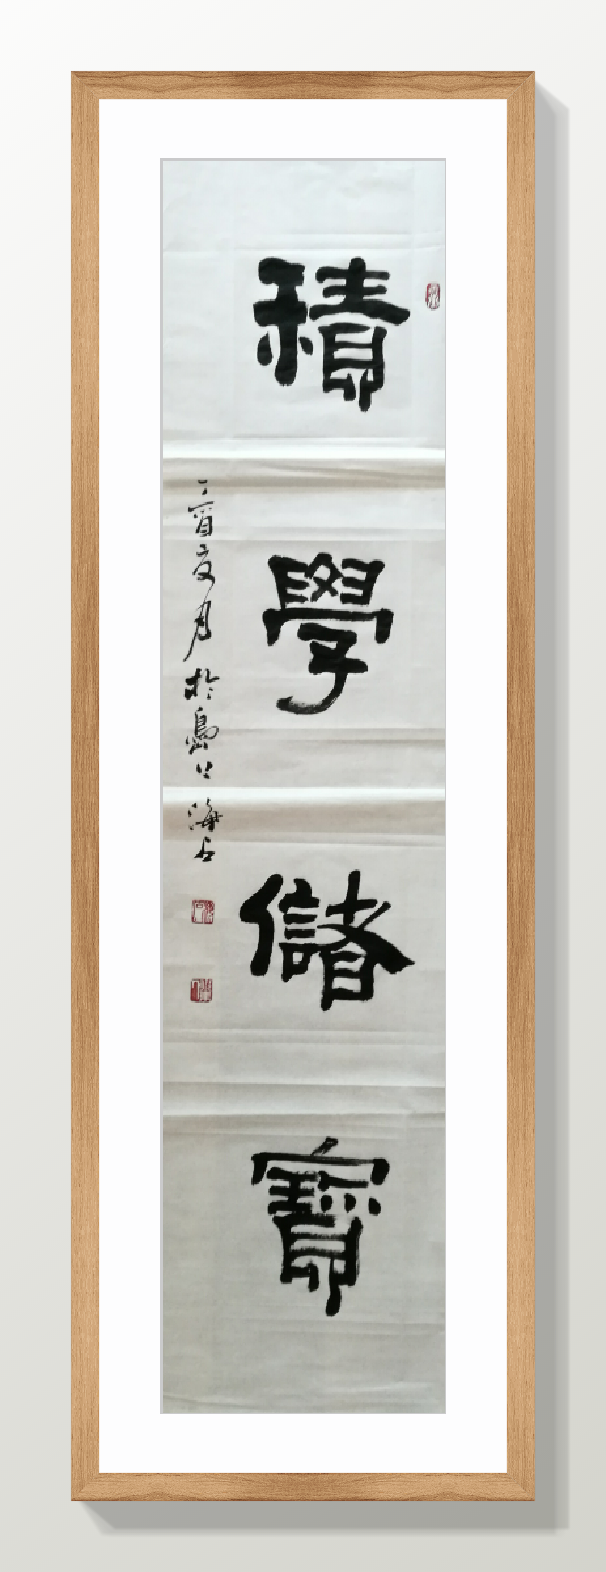 積學儲寶
丁酉夏月於島 海石